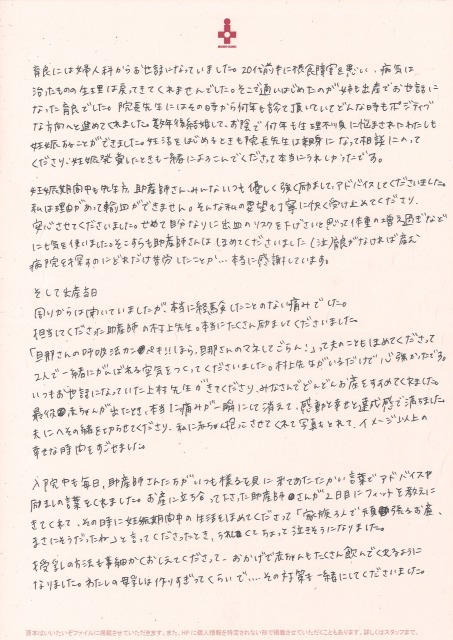 育良には婦人科からお世話になっていました。20代前半に摂食障害を患い、病気は
治ったものの生理は戻ってきてくれませんでした。そこで通いはじめたのが姉も出産でお世話に
なった育良でした。院長先生にはその時から何年も診て頂いていてどんな時もポジティブ
な方向へと進めてくれました。数年後結婚して、お陰で何年も生理不順に悩まされたわたしも
妊娠することができました。妊活をはじめるときも院長先生は親身になって相談にのって
くださり、妊娠発覚したときも一緒によろこんでくださって本当にうれしかったです。
妊娠期間中も先生方、助産師さん、みんないつも優しく強く励まして、アドバイスしてくださいました。
私は理由があって輸血ができません。そんな私の要望も丁寧に快く受け止めてくださり、
安心させてくださいました。せめて自分なりに出血のリスクを下げたいと思って体重の増え過ぎなど
にも気を使いました。そこすらも助産師さんはほめてくださいました
病院を探すのにどれだけ苦労したことか…本当に感謝しています。
そして出産当日
周りからは聞いていましたが、本当に経験したことのない痛みでした。
担当してくださった助産師の村上先生。本当にたくさん励ましてくださいました。
「旦那さんの呼吸法カンペキ!!ほら、旦那さんのマネしてごらん!」って夫のこともほめてくださって
2人で一緒にがんばれる空気をつくってくださいました。村上先生がいるだけで心強かったです。
いつもお世話になっていた上村先生がきてくださり、みなさんでどんどんお産をすすめてくれました。
最後赤ちゃんが出たとき、本当に痛みが一瞬にして消えて、感動と幸せと達成感で満ちました。
夫にへその緒を切らせてくださり、私に赤ちゃん抱っこさせてくれて写真もとれて、イメージ以上の
幸せな時間をすごせました。
入院中も毎日、助産師さんたちがいつも様子を見に来てあたたかい言葉でアドバイスや
励ましの言葉をくれました。お産に立ち合って下さった助産師さんが2日目にフィットを教えに
きてくれて、その時に妊娠期間中の生活をほめてくださって「家族3人で頑張るお産、
まさにそうだったね」と言ってくださったとき、うれしくてちょっと泣きそうになりました。
授乳の方法も事細かくおしえてくださって、おかげで赤ちゃんもたくさん飲んでくれるように
なりました。わたしの母乳は作りすぎってくらいで…、その対策も一緒にしてくださいました。
原本はいいたいぞファイルに掲載させていただきます。また、HPに個人情報を特定されない形で掲載させていただくこともあります。詳しくはスタッフまで。